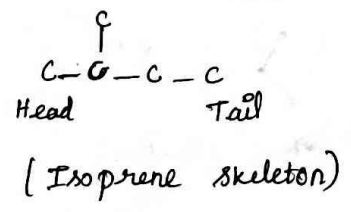 C
C-C-C-C
Head Tail
(Isoprene skeleton)